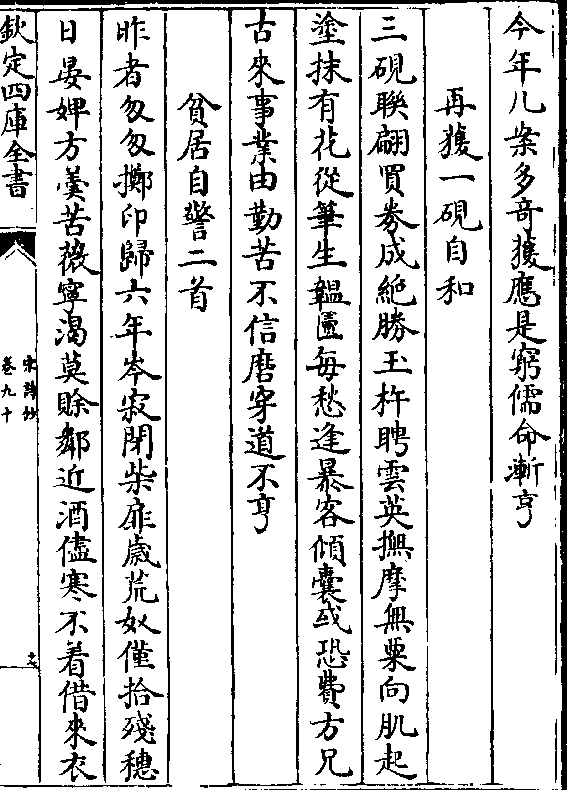 今年几案多奇獲應是窮儒命漸亨
再獲一硯自和
三硯聨翩買券成絶勝玉杵聘雲英撫摩無粟向肌起
塗抹有花從筆生韞匵每愁逢暴客傾囊或恐費方兄
古來事業由勤苦不信磨穿道不亨
貧居自警二首
昨者匆匆擲印歸六年岑寂閉柴扉歳荒奴僅拾殘穗
日晏婢方羮苦薇寧渴莫賒鄰近酒儘寒不着借來衣
欽定四庫全書
宋詩鈔
卷九十